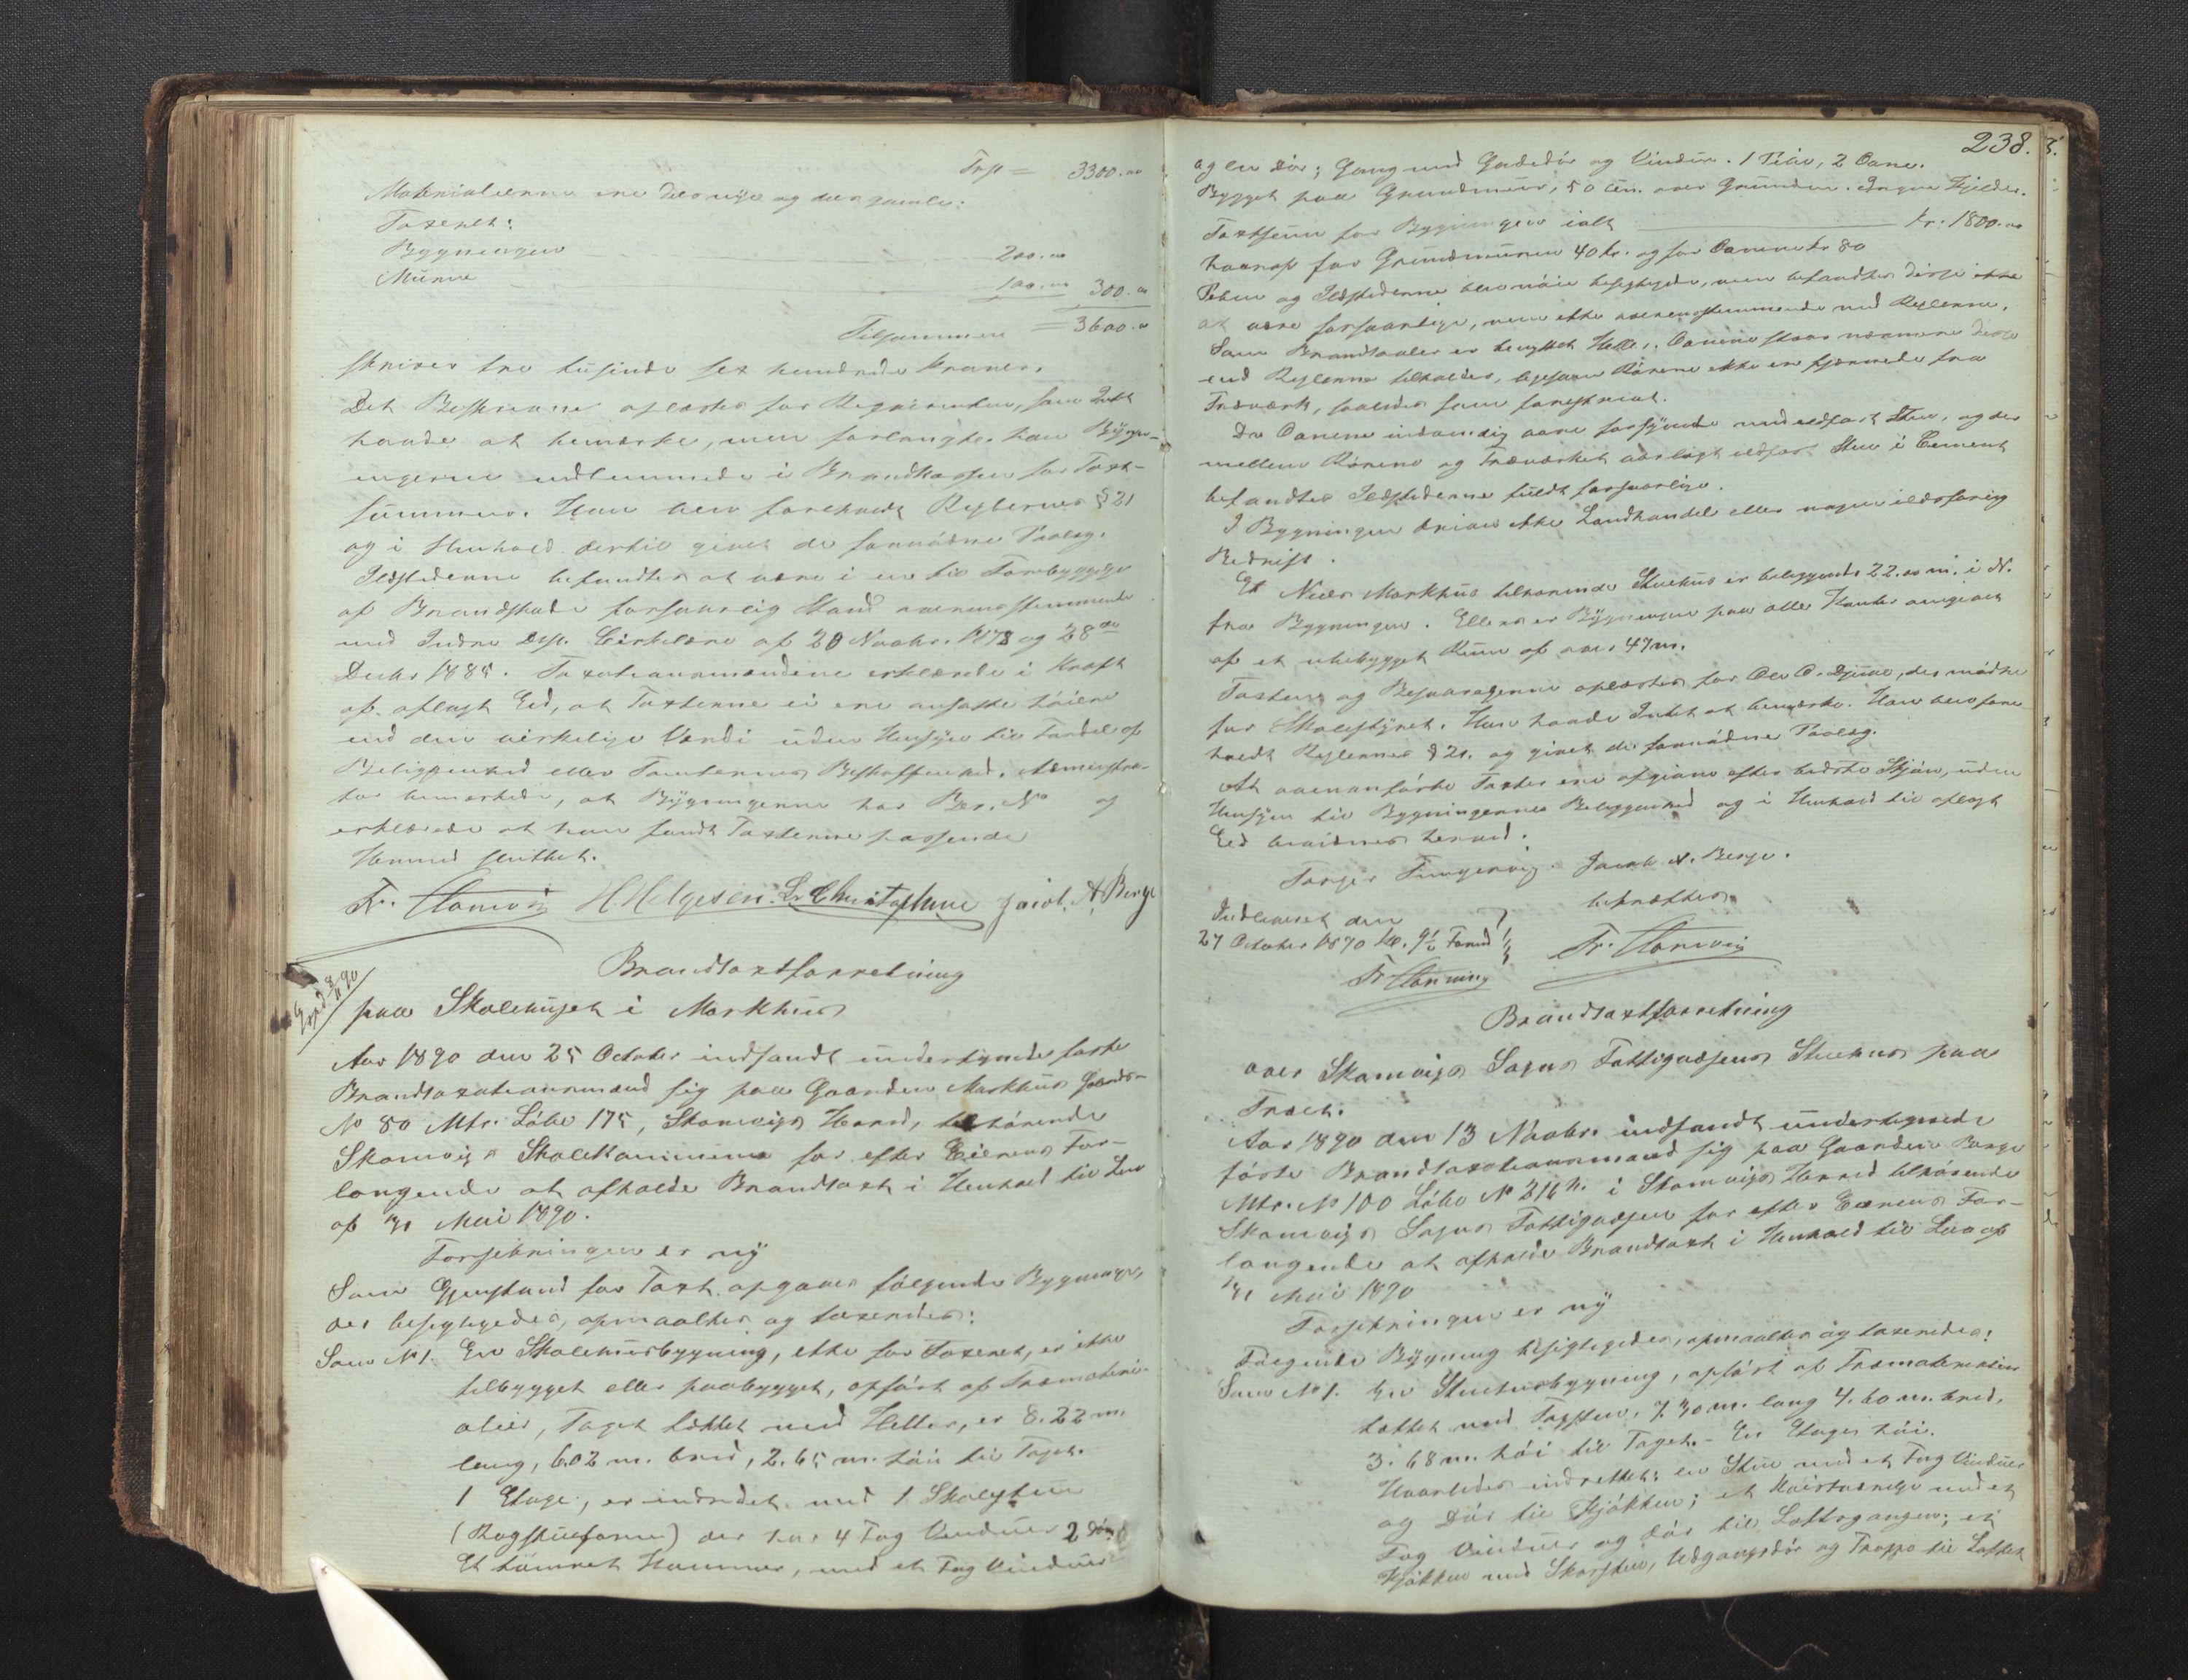 Trsp = 3300.00
Materialierne ere dels nye og dels gamle.
Taxeret:
Bygningen 200.00
Murene 100.00 300.00
Tilsammen = 3600.00
skriver tre tusinde sex hundrede kroner.
Det Beskrevne oplæstes for Reqvirenten, som Intet
havde at bemærke, men forlangte han Bygn-
ingerne indlemmede i Brandkassen for Taxt-
summen. Han blev foreholdt Reglernes § 21
og i Henhold dertil givet de fornødne Paalæg.
Ildstederne befandtes at være i en til Forebyggelse
af Brandskade forsvarlig Stand overensstemmende
med Indre Dep. Cirkulære af 20 Novbr. 1878 og 28de
Decbr 1885. Taxationsmændene erklærede i Kraft
af aflagt Eed, at Taxterne ei ere ansatte høiere
end den virkelige Værdi uden Hensyn til Fordel af
Beliggenhed eller Tomternes Beskaffenhed. Administra-
tor bemærkede, at Bygningerne har Bes. No og
erklærede at han fandt Taxterne passende
Hermed sluttet.
Fr. H. Helgesen. L. Christophersen Jacob. A. Berge
Brandtaxtforretning
Exped 90
paa Skolehuset i Markhus
Aar 1890 den 25 October indfandt undertegnede faste
Brandtaxationsmænd sig paa Gaarden Markhus Gaards-
No 80 Mtr. Løbe 175, Skonevigs Herred, tilhørende
Skonevigs Skolekommune for efter Eierens For-
langende at afholde Brandtaxt i Henhold til Lov
af Mai 1890.
Forsikringen er ny
Som Gjenstand for Taxt opgaves følgende Bygninger,
der besigtigedes, opmaaltes og taxeredes:
Som No 1. En Skolehusbygning, ikke før taxeret, er ikke
tilbygget eller paabygget, opført af Træmateri-
alier, Taget tækket med Heller, er 8.22 m.
lang, 6.02 m. bred, 2.65 m. høi til Taget.
1 Etage, er indredet med 1 Skolestue
(Røgstueform) der har 4 Fag Vinduer 2 Døre
Et tømret Kammer, med et Fag Vinduer
238.
og en Dør; Gang med Gadedør og Vindue. 1 Pibe, 2 Ovne.
Bygget paa Grundmuur, 50 cm. over Grunden. Ingen Kjelder.
Taxtsum for Bygningen ialt kr. 1800.00
hvoraf for Grundmuren 40 kr. og for Ovnene kr 80
Piben og Ildstederne blev nøie besigtigede, men befandtes disse
at være forsvarlige, men ikke overensstemmende med Reglerne.
Som Brandsoaler er benyttet Heller. Ovnene staar nærmere disse
end Reglerne tilholder, ligesom Rørene ikke er fjernede fra
Træværk, saaledes som foreskrevet.
Da Ovnene indvendig vare forsynede med ildfast Sten, og der
mellem Rørene og Træværket var lagt ildfast Sten i Cement
befandtes Ildstederne fuldt forsvarlige.
I Bygningen drives ikke Landhandel eller nogen ildsfarlig
Bedrift.
Et Niels Markhus tilhørende Stuehus er beliggende 22.00 m. i N.
fra Bygningen. Ellers er Bygningen paa alle Kanter omgiven
af et ubebygget Rum af over 47 m.
Taxten og Besvarelserne oplæstes for Ole O. Djuve, der mødte
for Skolestyret. Han havde Intet at bemærke. Han blev fore-
holdt Reglernes § 21. og givet de fornødne Paalæg.
At ovenanførte Taxter ere afgivne efter bedste Skjøn, uden
Hensyn til Bygningernes Beliggenhed og i Henhold til aflagt
Eed bevidnes herved.
Torger Jacob A. Berge.
bekræfter
Indleveret den
27 October 1890 Kl. 9½ Formd
Fr. Fr.
Brandtaxtforretning
over Skonevigs Sogns Fattigvæsens Stuehus paa
Træet.
Aar 1890 den 13 Novbr. indfandt undertegnede
faste Brandtaxationsmænd sig paa Gaarden Berge
Mtr. No 100 Løbe No 216 h. i Skonevigs Herred tilhørende
Skonevigs Sogns Fattigvæsen for efter Eierens For-
langende at afholde Brandtaxt i Henhold til Lov af
Mai 1890
Forsikringen er ny
Følgende Bygning besigtigedes, opmaaltes og taxeredes:
Som No 1. En Stuehusbygning, opført af Træmaterialier
tækket med Tagsten, 7.30 m. lang 4.60 m. bred,
3.68 m. høi til Taget. - En Etages høi.
Hvorledes indrettet: en Stue med et Fag Vinduer
og Dør til Kjøkken; et Kvistværelse med et
Fag Vinduer og Dør til Loftsgangen; et
Kjøkken med Skorsten, Udgangsdør og Trappe til Loftet